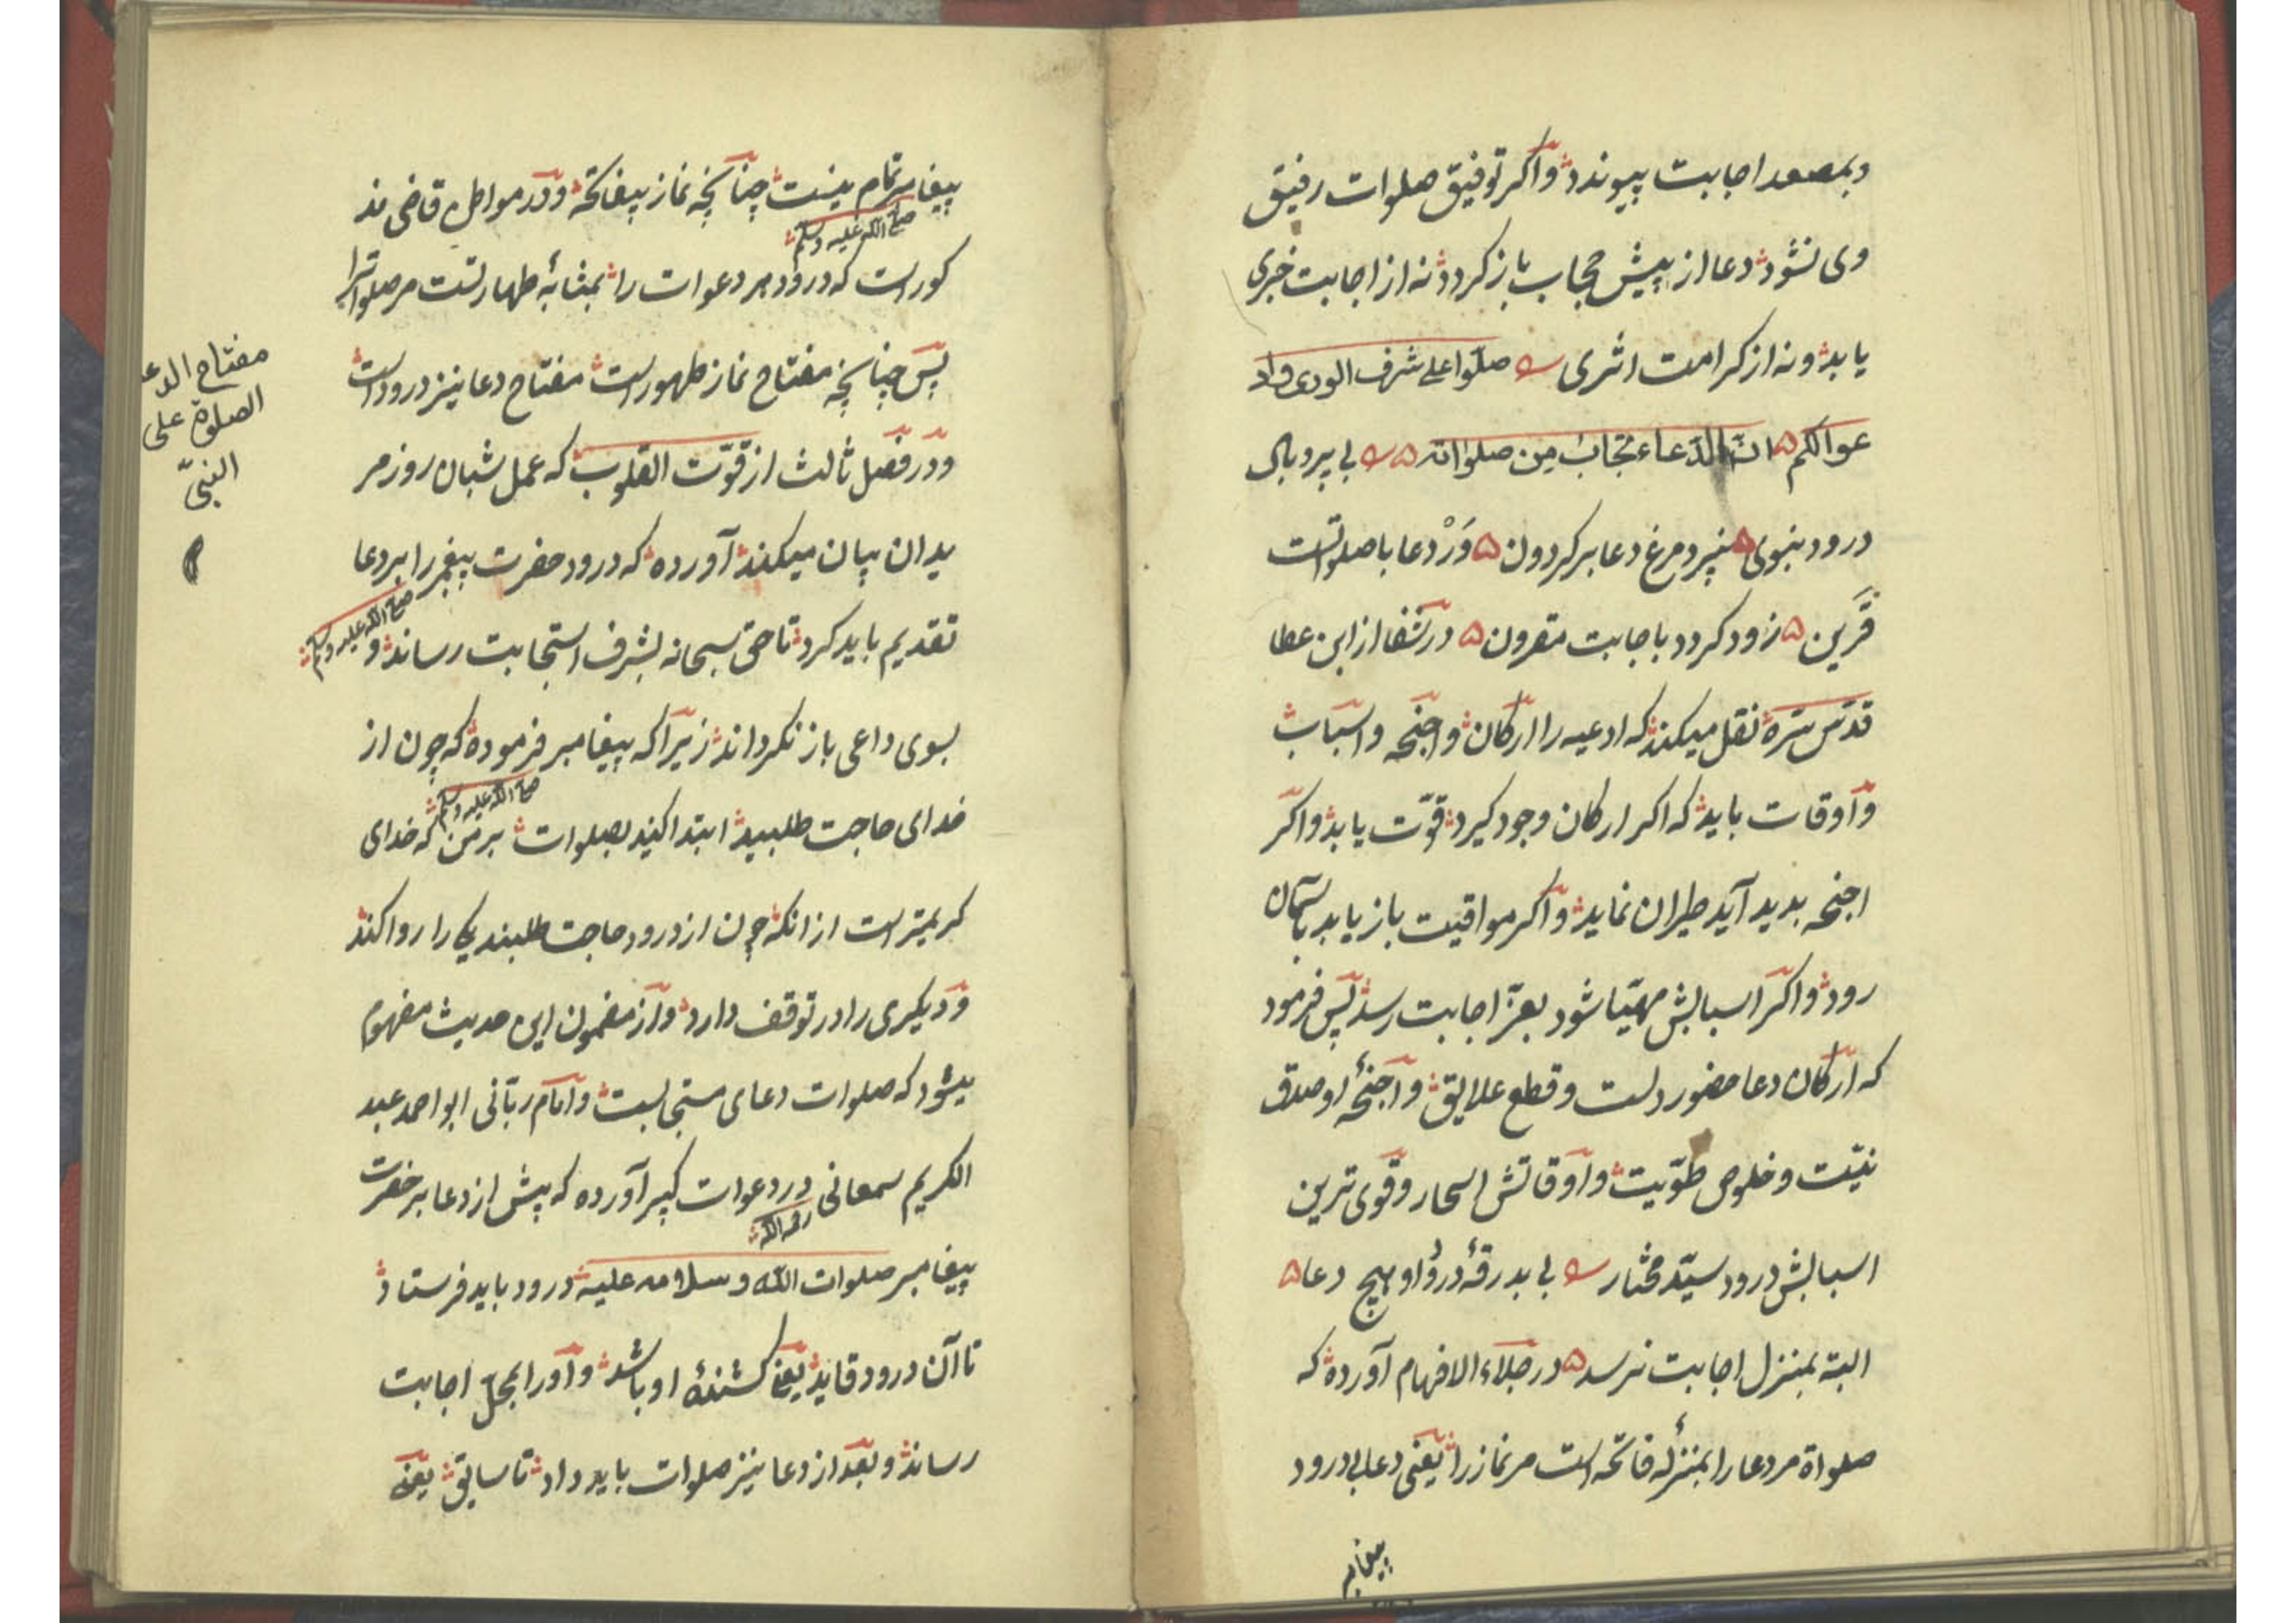 و بمصعد اجابت پیوندد و اگر توفیق صلوات رفیق
وی نشود دعا از پیش حجاب باز کردد نه از اجابت خبری
یابد و نه از کرامت اثری صلّوا علی شرف الوری و اد
عوا لکم انّ الدّعاء مجابٌ من صلواته بی پر و بال
درود نبوی نپرد مرغ دعا بر کردون وَرْ دعا با صلواتست
قَرین زود کردد باجابت مقرون در شفا از ابن عطا
قدّس سرّه نقل میکند که ادعیه را ارکان و اجنحه و اسباب
و اوقات باید که اکر ارکان وجود کیرد قوّت یابد و اکر
اجنحه بدید آید طیران نماید و اکر مواقیت باز یابد بآسمان
رود و اکر اسبابش مهیّا شود بعزّ اجابت رسد پس فرمود
که ارکان دعا حضور دلست و قطع علایق و اجنحهٔ او صدق
نیّت و خلوص طویّت و اوقاتش اسحار و قوی ترین
اسبابش درود سیّد مختار بی بدرقهٔ درود او هیچ دعا
البته بمنزل اجابت نرسد در جلاء الافهام آورده که
صلواة مر دعا را بمنزلهٔ فاتحه است مر نماز را یعنی دعا بی درود
پیغامبر
پیغامبر تمام نیست چنانچه نماز بیفاتحه و در مواطن قاضی مذ
صلی الله علیه وسلم
کورست که درود مر دعوات را بمثابهٔ طهارتست مر صلوات را
پس چنانچه مفتاح نماز طهورست مفتاح دعا نیز درودست
و در فصل ثالث از قوّت القلوب که عمل شبان روز مر
یدان بیان میکند آورده که درود حضرت پیغمبر را بر دعا
صلی الله علیه وسلم
تقدیم باید کرد تا حق سبحانه بشرف استجابت رساند و
بسوی داعی باز نکرداند زیرا که پیغامبر فرموده که چون از
صلی الله علیه وسلم
خدای حاجت طلبید ابتدا کنید بصلوات بر من که خدای
کریمترست از انکه چون از درود حاجت طلبند یکی را روا کند
و دیکری را در توقف دارد و از مضمون این حدیث مفهوم
میشود که صلوات دعای مستجابست و امام ربّانی ابو احمد عبد
الکریم سمعانی در دعوات کبیر آورده که پیش از دعا بر حضرت
رحمه الله
پیغامبر صلوات الله و سلامه علیه درود باید فرستاد
تا آن درود قاید یعنی کشندهٔ او باشد و او را بمحلّ اجابت
رساند و بعد از دعا نیز صلوات باید داد تا سایق یعنی
مفتاح الدعا
الصلوة علی
النبیّ